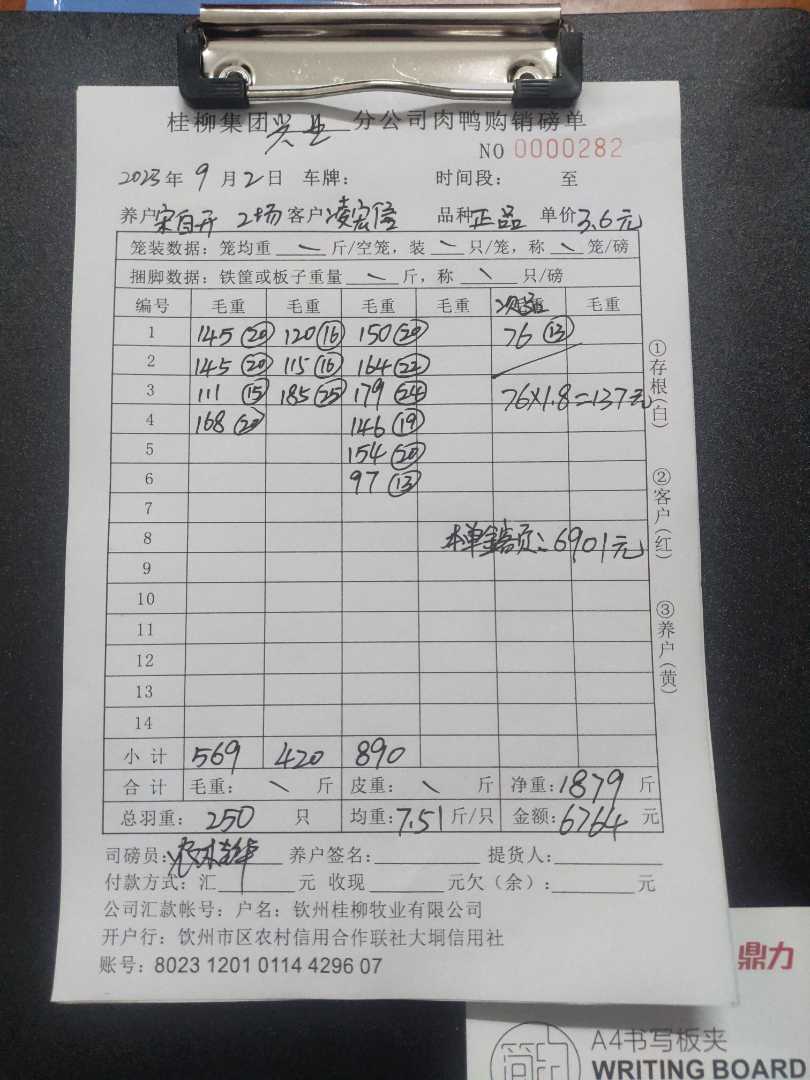 桂柳集团兴业分公司肉鸭购销磅单
NO 0000282
2023年9月2日 车牌: 时间段: 至
养户宋自开 2场 客户凌宏信 品种正品 单价3.6元
笼装数据: 笼均重 \ 斤/空笼, 装 \ 只/笼, 称 \ 笼/磅
捆脚数据: 铁筐或板子重量 \ 斤, 称 \ 只/磅
编号 毛重 毛重 毛重 毛重 次品 毛重
1 145 (20) 120 (16) 150 (20) 76 (13)
2 145 (20) 115 (16) 164 (22)
3 111 (15) 185 (25) 179 (24) 76×1.8=137元
4 168 146 (19)
5 154 (20)
6 97 (13)
7
8 本单金额: 6901元
9
10
11
12
13
14
小计 569 420 890
合计 毛重: \ 斤 皮重: \ 斤 净重: 1879 斤
总羽重: 250 只 均重: 7.51 斤/只 金额: 6764 元
司磅员: 养户签名: 提货人:
付款方式: 汇 元 收现 元欠(余): 元
公司汇款帐号: 户名: 钦州桂柳牧业有限公司
开户行: 饮州市区农村信用合作联社大垌信用社
账号: 8023 1201 0114 4296 07
①存根(白)
②客户(红)
③养户(黄)
鼎力
A4书写板夹
WRITING BOARD